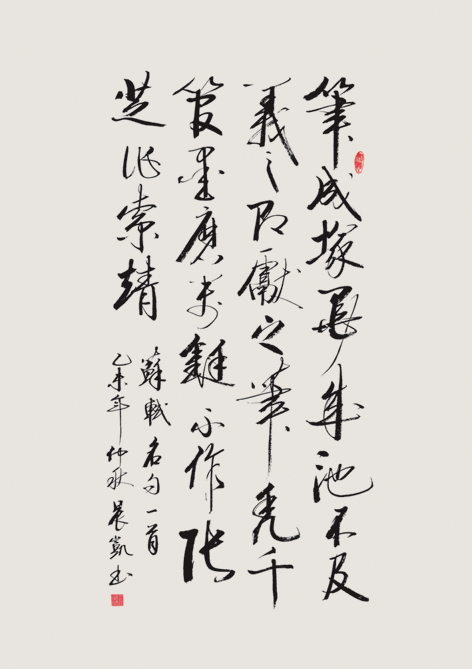 笔成冢墨成池不及
羲之即献之笔秃千
管墨磨万铤不作张
芝作索靖
蘇軾名句一首
乙未年仲秋晨凱书